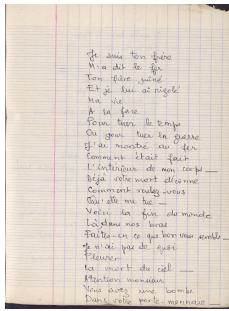 Je suis ton frère
M'a dit le fer
Ton frère
Et je lui ai rigolé
Ma vie
A sa face
Pour tuer le temps
Ou pour tuer la guerre
J'ai montré au fer
Comment était fait
L'intérieur de mon corps
Déjà votre mort
Comment voulez-vous
Qu'elle me tue
Voici la fin du monde
Là dans nos bras
Faites-en ce que bon vous semble
Je n'ai pas de quoi
Pleurer
La mort du ciel
Attention
Vous avez une bombe
Dans votre porte-monnaie